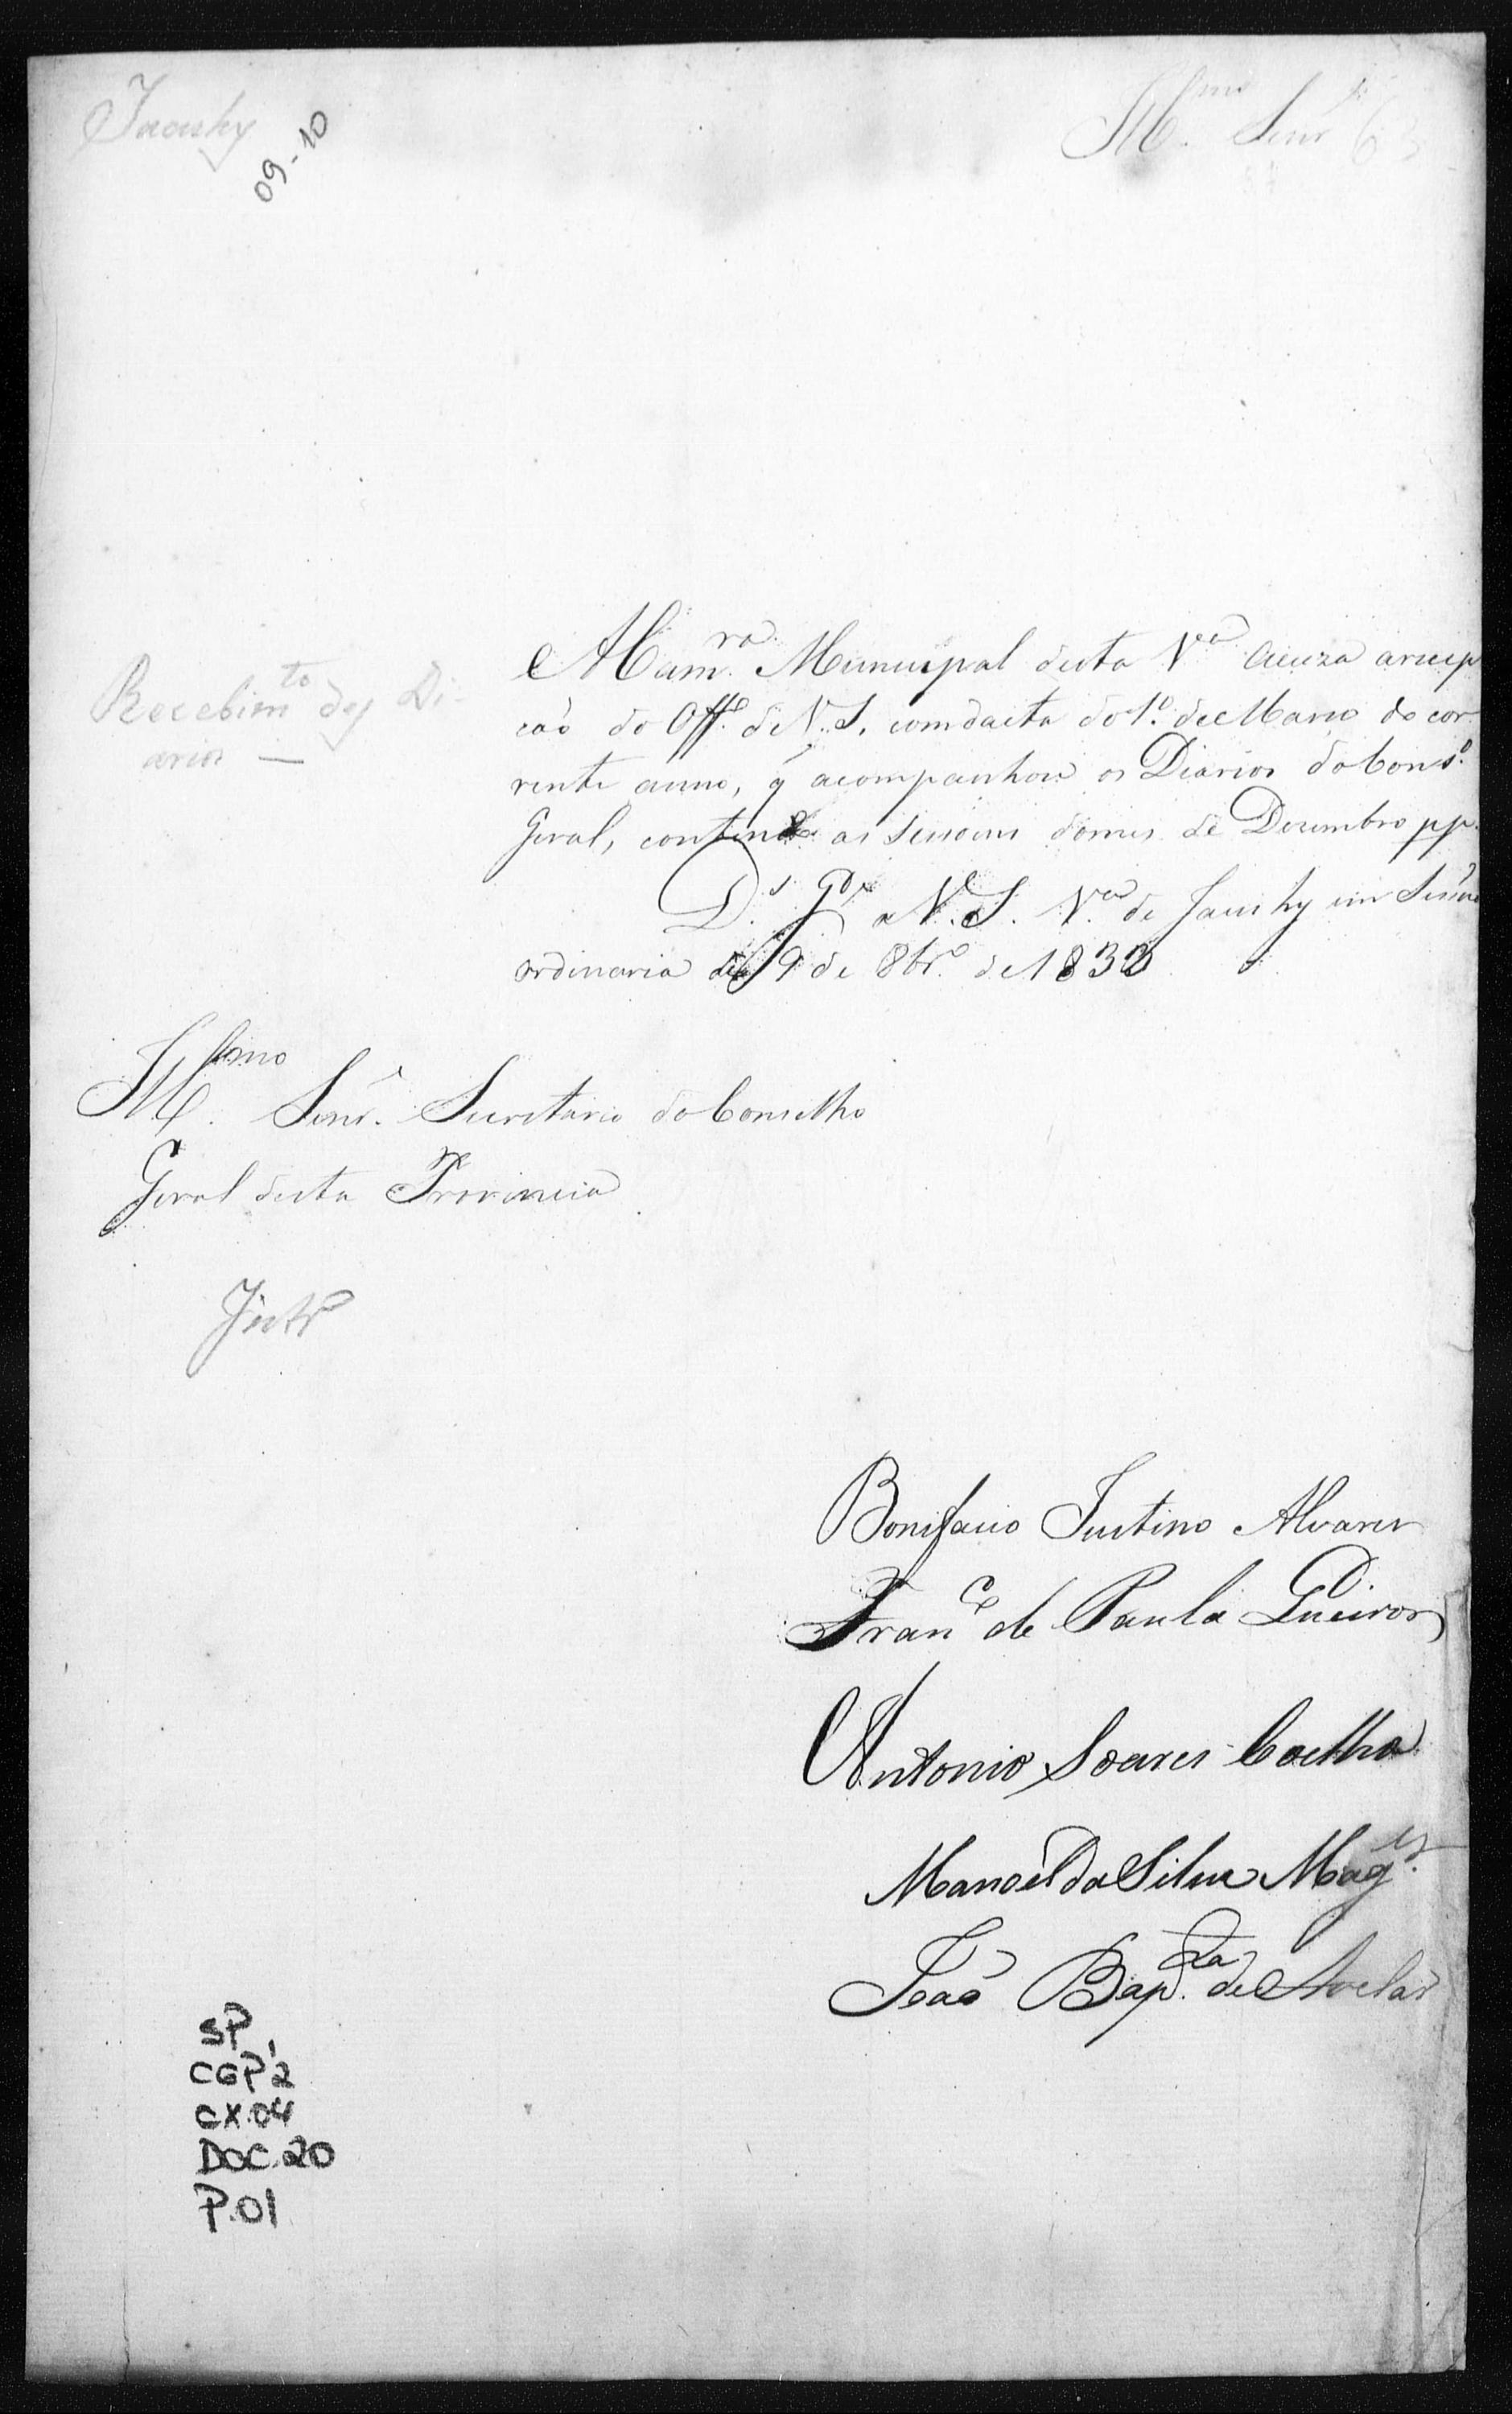 Jacuhy
09-10
Ill.mo Senr.
Recebim.to dos Di-
arios —
A Cam.ra Municipal desta V.a acuza arecep
caõ do Off.o de V. S. com dacta do 1.o de Marco do cor
rente anno, q acompanhou os Diarios do Cons.o
Geral, contendo as sessoens do mes de Dezembro pp.
D.s G.de a V. S. V.a de Jacuhy em Sessaõ
ordinaria de 9 de 8br.o de 1833
Ill.mo Senr. Secretario do Conselho
Geral desta Provincia
Bonifacio Justino Alvares
Fran.co de Paula Queiros
Antonio Soares Coelho
Manoel da Silva Mag.es
Joaõ Bap.ta de Avelar
SP,
CGP'2
CX.04
DOC.20
P.01